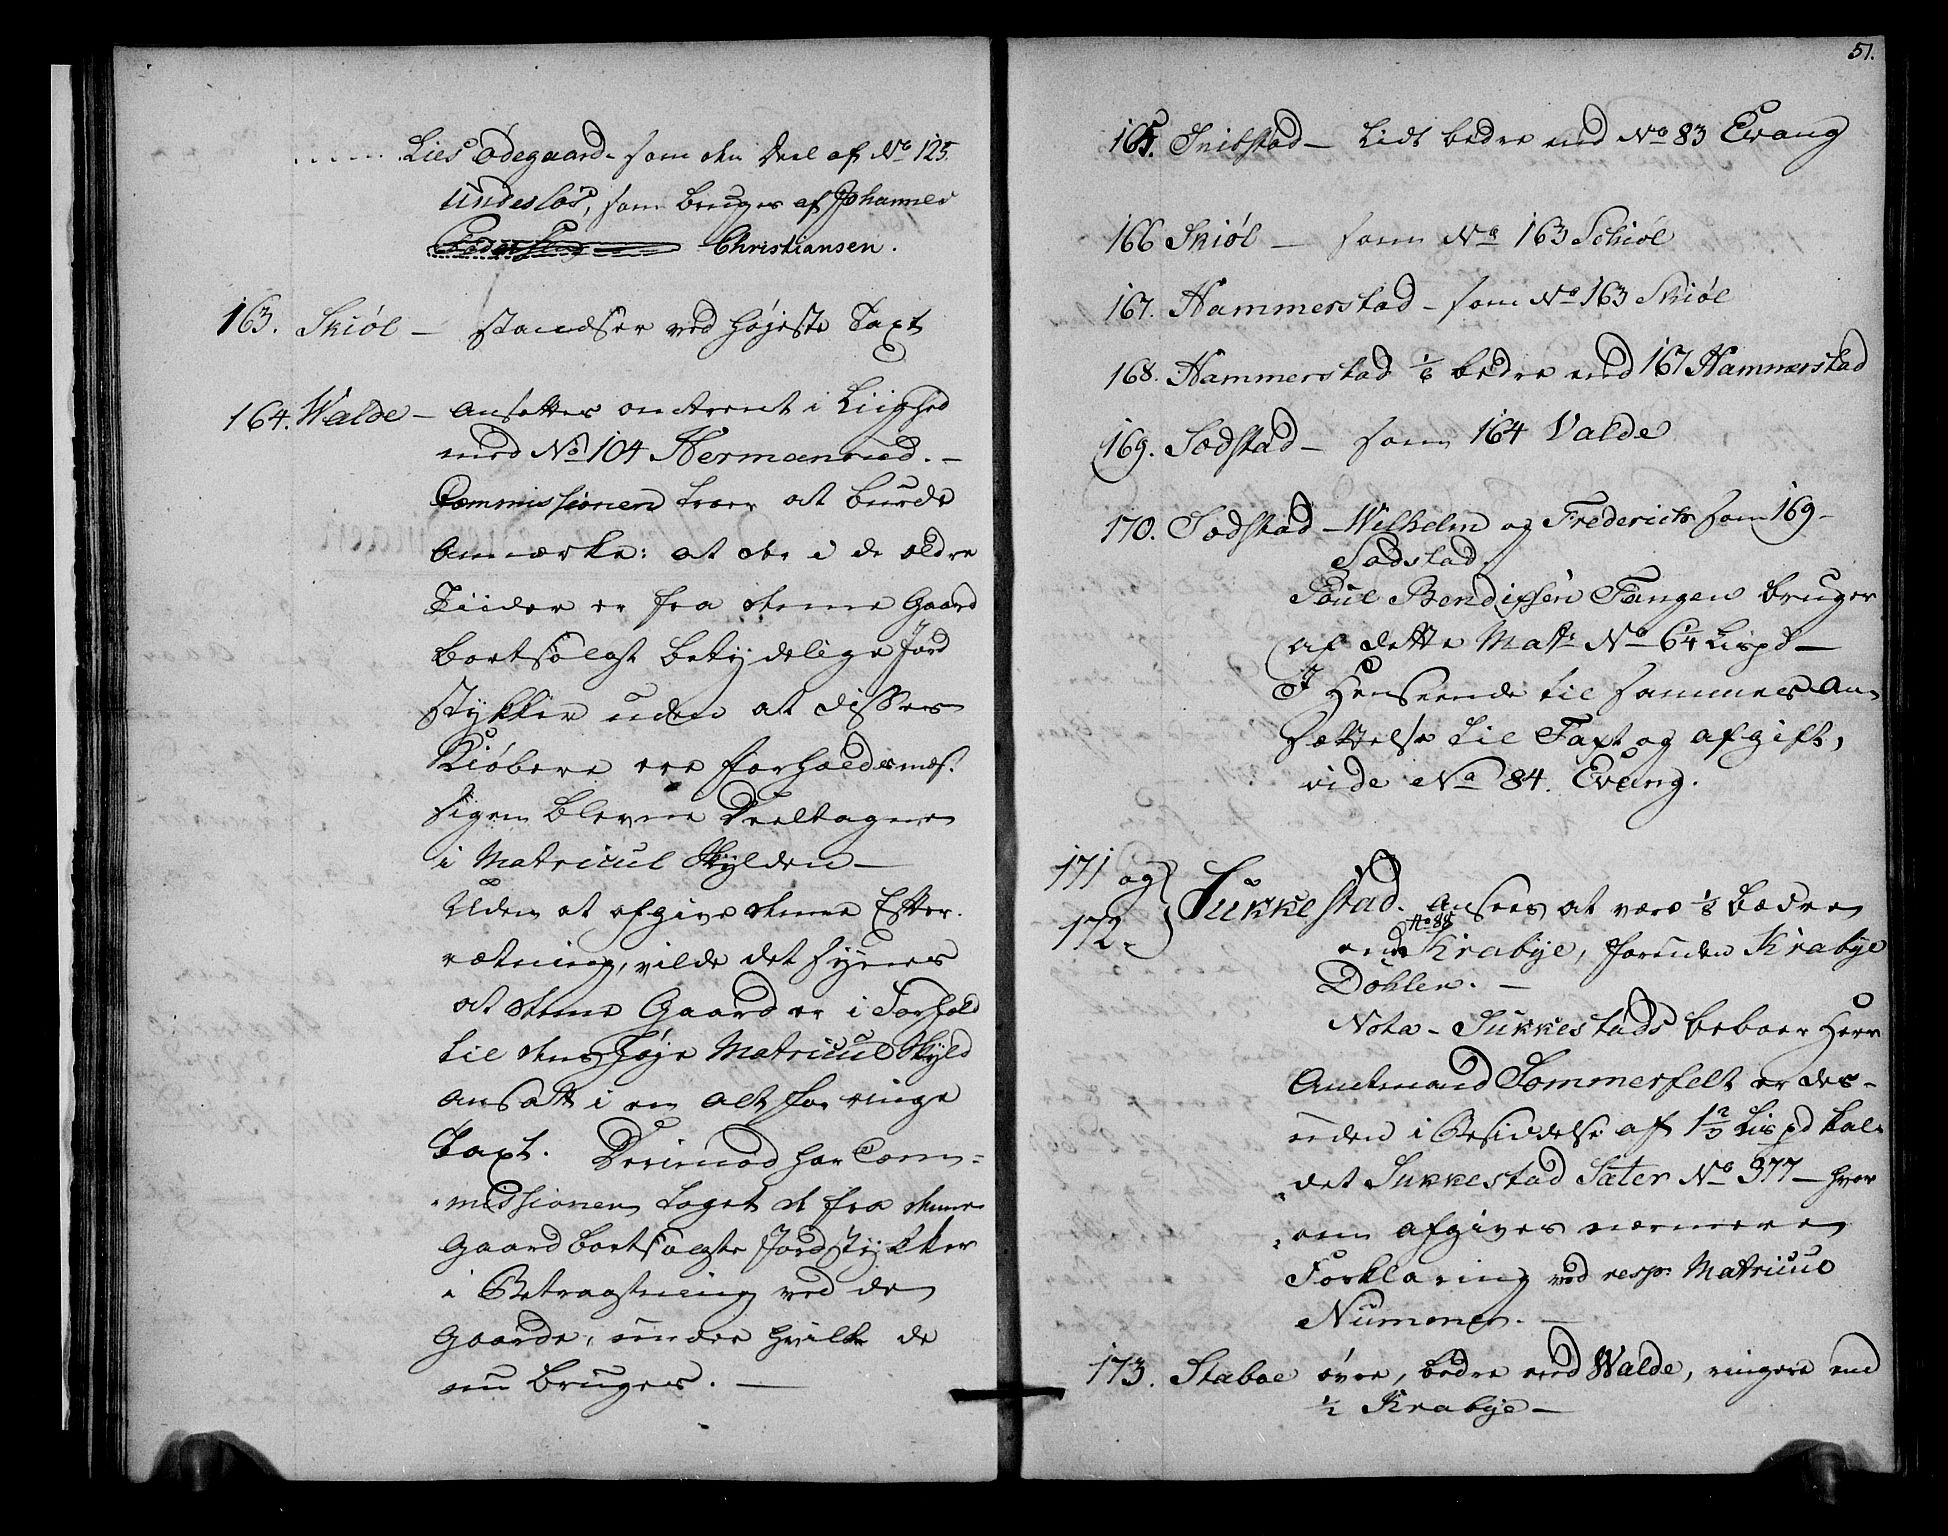 ..... Lies Ødegaard som den Deel af No 125.
Undeslös, som bruges af Johannes
Christiansen.
163. Skiöl – standser ved høieste Taxt
164. Walde – ansettes omtrent i Liighed
med No 104 Hermanrud. –
Commissionen troer at burde
Anmærke: at der i de ældre
Tiider er fra denne Gaard
bortsolgt betydelige Jord
stykker uden at disses
Kiøbere ere forholdsmæs.
sigen blevne Deeltagere
i Matricul Skylden –
Uden at afgive denne Efter.
rætning, vilde det synes
at denne Gaard er i Forhold
til dens høje Matricul Skyld
ansatt i en alt for ringe
Taxt. Derimod har Com-
missionen taget de fra denne
Gaard bortsolgte Jordstykker
i Betragtning ved de
Gaarde, under hvilke de
nu bruges. –
51.
165. Snibstad – Lidt bedre end No 83 Evang
166 Skiöl – som No 163 Schiøl
167. Hammerstad – som No 163 Skiøl
168. Hammerstad 1/6 bedre end 167 Hammerstad
169. Sodstad – som 164 Valde
170. Sodstad – Wilhelm og Frederichs som 169 –
Sodstad.
Poul Bendixsen Fangen bruger
af dette Matr. No 6 1/4 Lispd –
I Henseende til sammes An-
sættelse til Taxt og afgift,
vide No 84. Evang.
171 og
172. } Sukkestad. ansees at være 1/8 bedre
end No 88 Krabye, foruden Krabye
Dohlen. –
Nota – Sukkestads beboer Herr
Amtmand Sommerfelt er des-
uden i Besiddelse af 1 2/3 Lispd kal-
det Sukkestad Sæter No 377 – hvor
om afgives nærmere
Forklaring ved resp. Matricul
Nummer. –
173. Staboe övre, bedre end Walde, ringere end
1/2 Krabye –